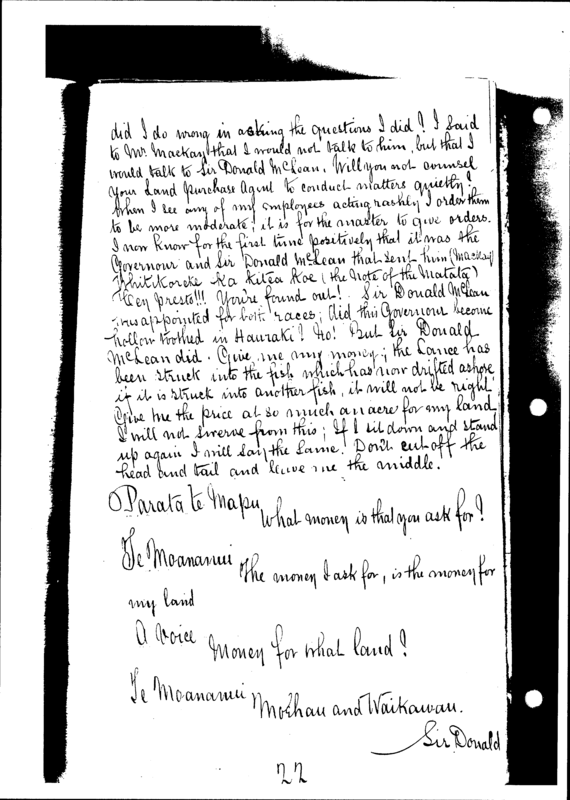 did I do wrong in asking the questions I did? I said
to Mr. Mackay that I would not talk to him, but that I
would talk to Sir Donald McLean. Will you not counsel
your Land Purchase Agent to conduct matters quietly?
When I see any of my employees acting rashly I order them
to be more moderate; it is for the master to give orders.
I now know for the first time positively that it was the
Governour and Sir Donald McLean that sent him (Mackay)
Whitikoreke Ka Kitea Koe (the note of the Matata)
Hey presto!!! You're found out! Sir Donald McLean
was appointed for both races; did this Governour become
hollow toothed in Hauraki? No! But Sir Donald
McLean did. Give me my money; the Lance has
been struck into the fish which has now drifted ashore
if it is struck into another fish, it will not be right.
Give me the price at so much an acre for my land
I will not swerve from this; If I sit down and stand
up again I will say the same. Don't cut off the
head and tail and leave me the middle.
Parata te Mapu What money is that you ask for?
Te Moananui The money I ask for, is the money for
my land
A Voice Money for what land?
Te Moananui Moehau and Waikawau.
Sir Donald
22